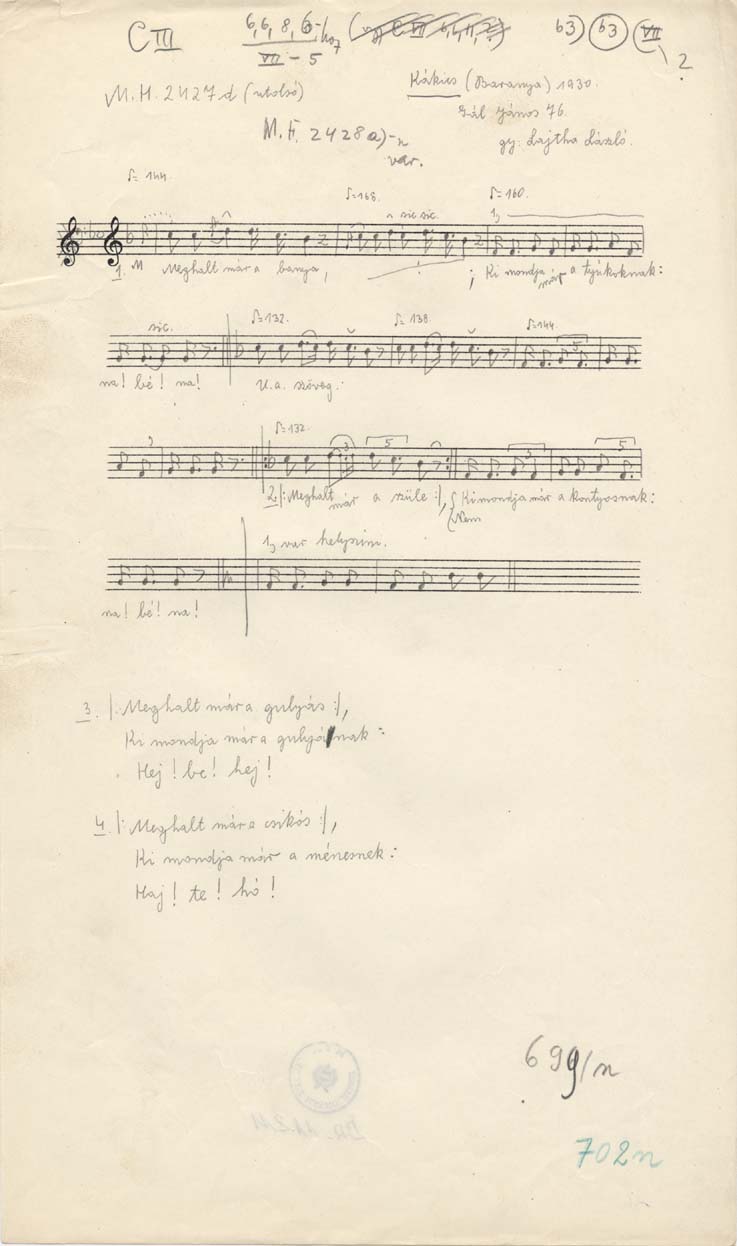 C III 6, 6, 8, 6,-hoz b3) b3 VII
VII – 5 2
M.H. 2427d (utolsó) Kákics (Baranya) 1930.
Gál János 76.
M.F. 2428a)-n gy: Lajtha László.
var.
♪= 144. ♪=168. ♪=160.
sic sic. 1,
1. M Meghalt már a banya, ; Ki mondja már a tyúkoknak:
sic. ♪=132. ♪=138. ♪=144.
5
na! bé! na! U.a. szöveg.
3 ♪=132. 3 5 3 5
2. |: Meghalt már a szüle :|, { Ki mondja már a kontyosnak:
Nem
1, var helyszín.
na! bé! na!
3. |: Meghalt már a gulyás :|,
Ki mondja már a gulyának:
Hej! be! hej!
4. |: Meghalt már a csikós :|,
Ki mondja már a ménesnek:
Haj! te! hó!
699/n
702n